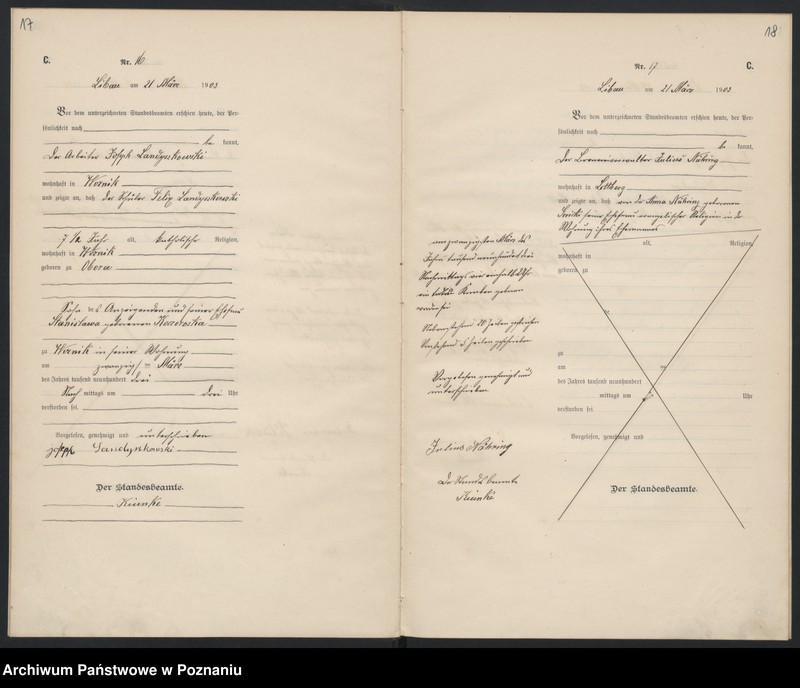 17
C.
Nr. 16
Libau am 21 März 1903
Vor dem unterzeichneten Standesbeamten erschien heute, der Per-
sönlichkeit nach
be kannt,
der Arbeiter Joseph Landynskowski
wohnhaft in Woznik
und zeigte an, daß der Schüler Felix
7 1/2 Jahr alt, katholischer Religion,
wohnhaft in Woznik
geboren zu Obora
Sohn des Anzeigenden und seiner Ehefrau
Stanislawa geborenen
zu Woznik in seiner Wohnung
am zwanzigsten März
des Jahres tausend neunhundert drei
Nach mittags um drei Uhr
verstorben sei.
Vorgelesen, genehmigt und unterschrieben
Der Standesbeamte.
18
Nr. 17
C.
Libau am 21 März 1903
Vor dem unterzeichneten Standesbeamten erschien heute, der Per-
sönlichkeit nach
be kannt,
der Brennereiverwalter Julius Nähring
wohnhaft in
und zeigte an, daß von der Anna Nähring geborenen
seiner Ehefrau evangelischer Religion in der
Wohnung ihres Ehemannes
alt, Religion,
wohnhaft in
geboren zu
zu
am
des Jahres tausend neunhundert
mittags um Uhr
verstorben sei.
Vorgelesen, genehmigt und
Der Standesbeamte.
am zwanzigsten März des
Jahres tausend neunhundert drei
Nachmittags um einhalb Uhr
ein todtes Kind geboren
worden sei
Vorgelesen genehmigt und
unterschrieben
Julius Nähring
Der Standesbeamte
Archiwum Państwowe w Poznaniu